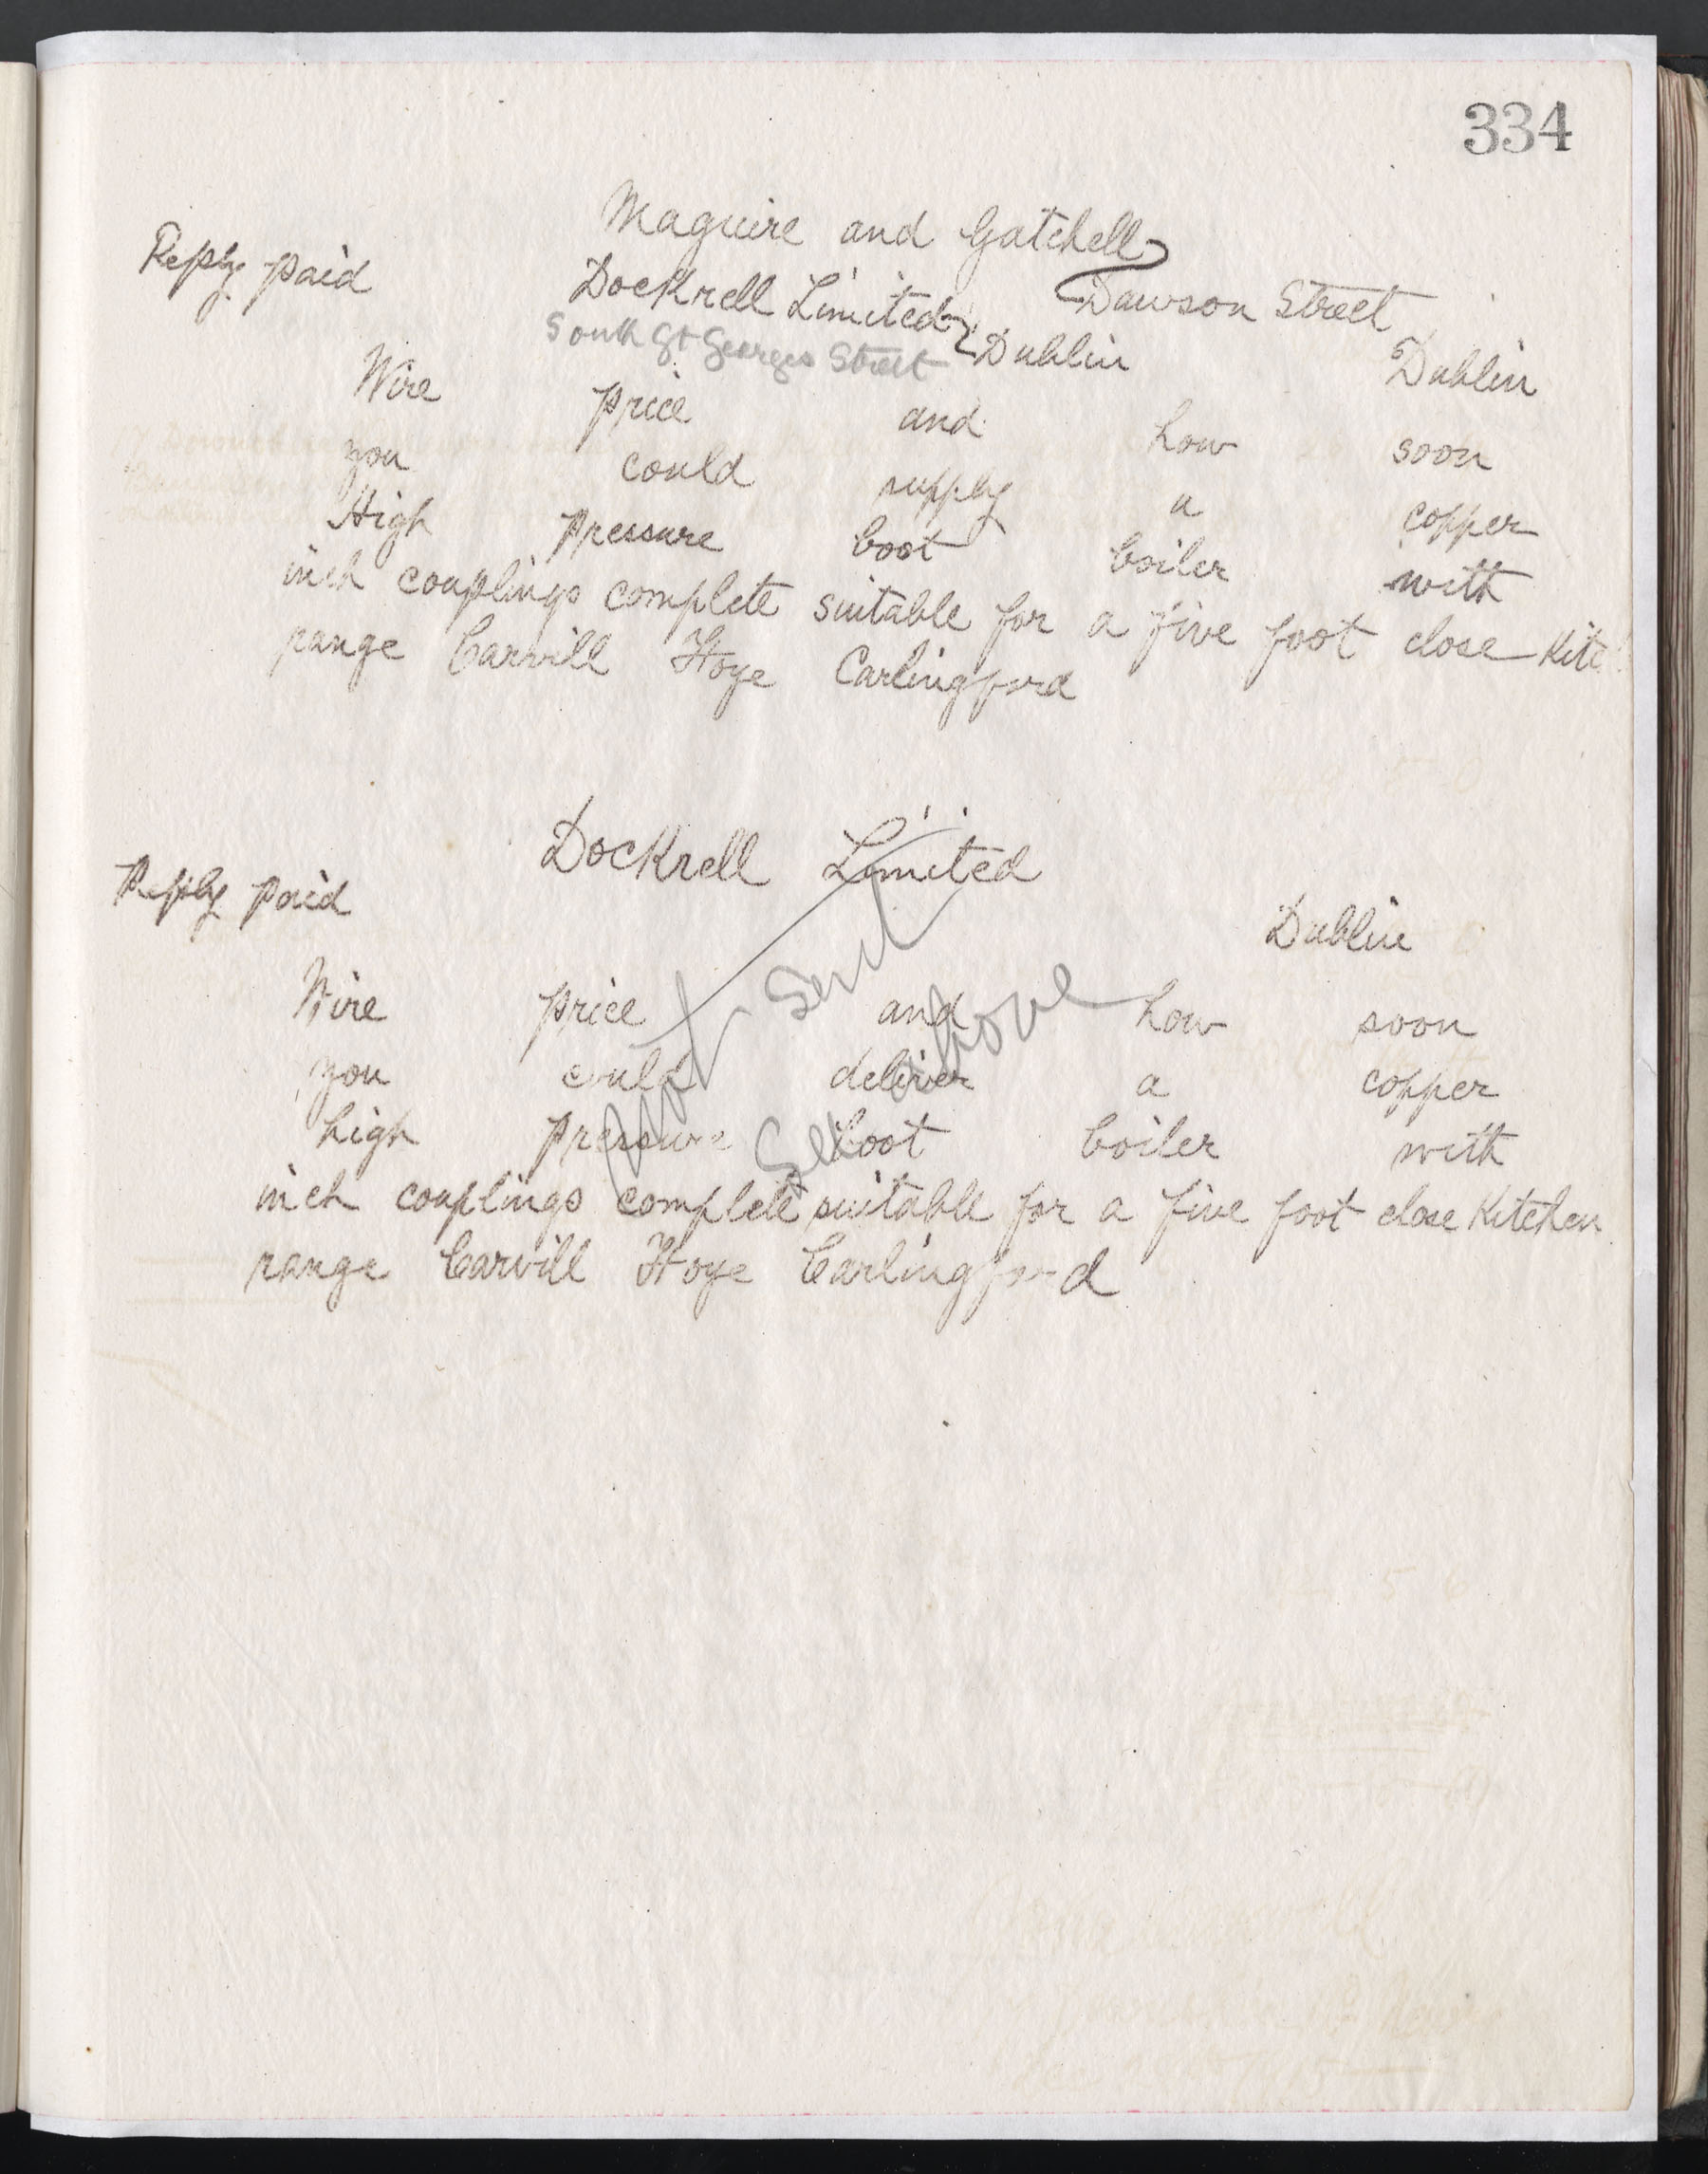 334
Maguire and Gatchell
Reply paid
Dockrell Limited
Dawson Street
South Gt Georges Street
Dublin
Dublin
Wire price and how soon
you could supply a copper
High pressure boot boiler with
inch couplings complete suitable for a five foot close Kitc
range Carvill Hoye Carlingford
Dockrell Limited
Reply paid
Dublin
Wire price and how soon
you could deliver a copper
high pressure boot boiler with
inch couplings complete suitable for a five foot close Kitchen
range Carvill Hoye Carlingford
Not sent
See above